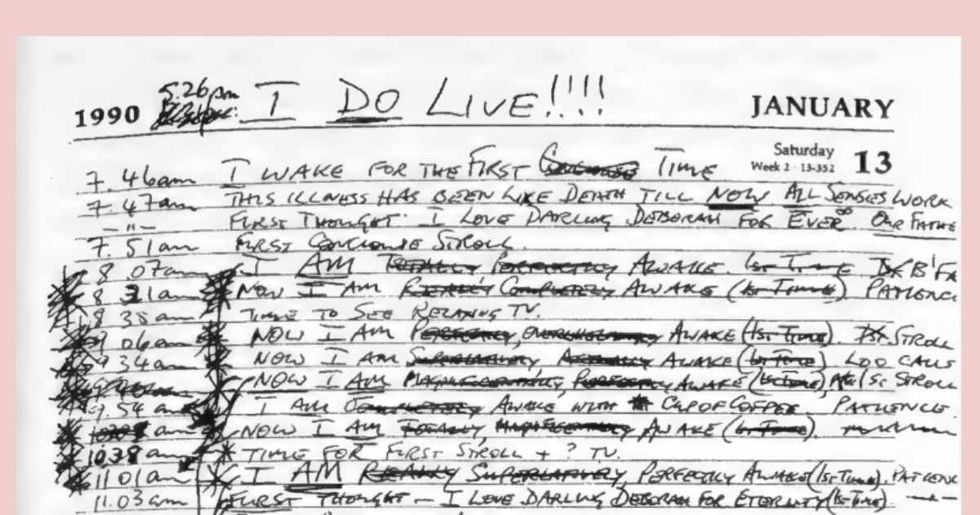 1990 5.26pm I DO LIVE!!!! JANUARY
Saturday
Week 2 · 13-352 13
7.46am I WAKE FOR THE FIRST TIME
7.47am THIS ILLNESS HAS BEEN LIKE DEATH TILL NOW ALL SENSES WORK
-"- FIRST THOUGHT: I LOVE DARLING DEBORAH FOR EVER OUR FATHE
7.51am FIRST STROLL.
8.07am I AM TOTALLY, PERFECTLY AWAKE. 1ST TIME
8 31am NOW I AM REALLY COMPLETELY AWAKE (1ST TIME) PATIENC
8 35am TIME TO SEE RELAXING TV.
9 06am NOW I AM PERFECTLY, OVERWHELMINGLY AWAKE (1ST TIME) STROLL
9 34am NOW I AM SUPERLATIVELY ACTUALLY AWAKE (1ST TIME) LOO CALLS
NOW I AM PERFECTLY AWAKE (1ST TIME) STROLL
9 54am I AM COMPLETELY AWAKE WITH CUP OF COFFEE. PATIENCE.
am NOW I AM TOTALLY, AWAKE (1ST TIME).
1038am TIME FOR FIRST STROLL + ? TV.
11 01am I AM REALLY SUPERLATIVELY, PERFECTLY AWAKE (1ST TIME). PATIENC
11.03am FIRST THOUGHT — I LOVE DARLING DEBORAH FOR ETERNITY (1ST TIME). —"—